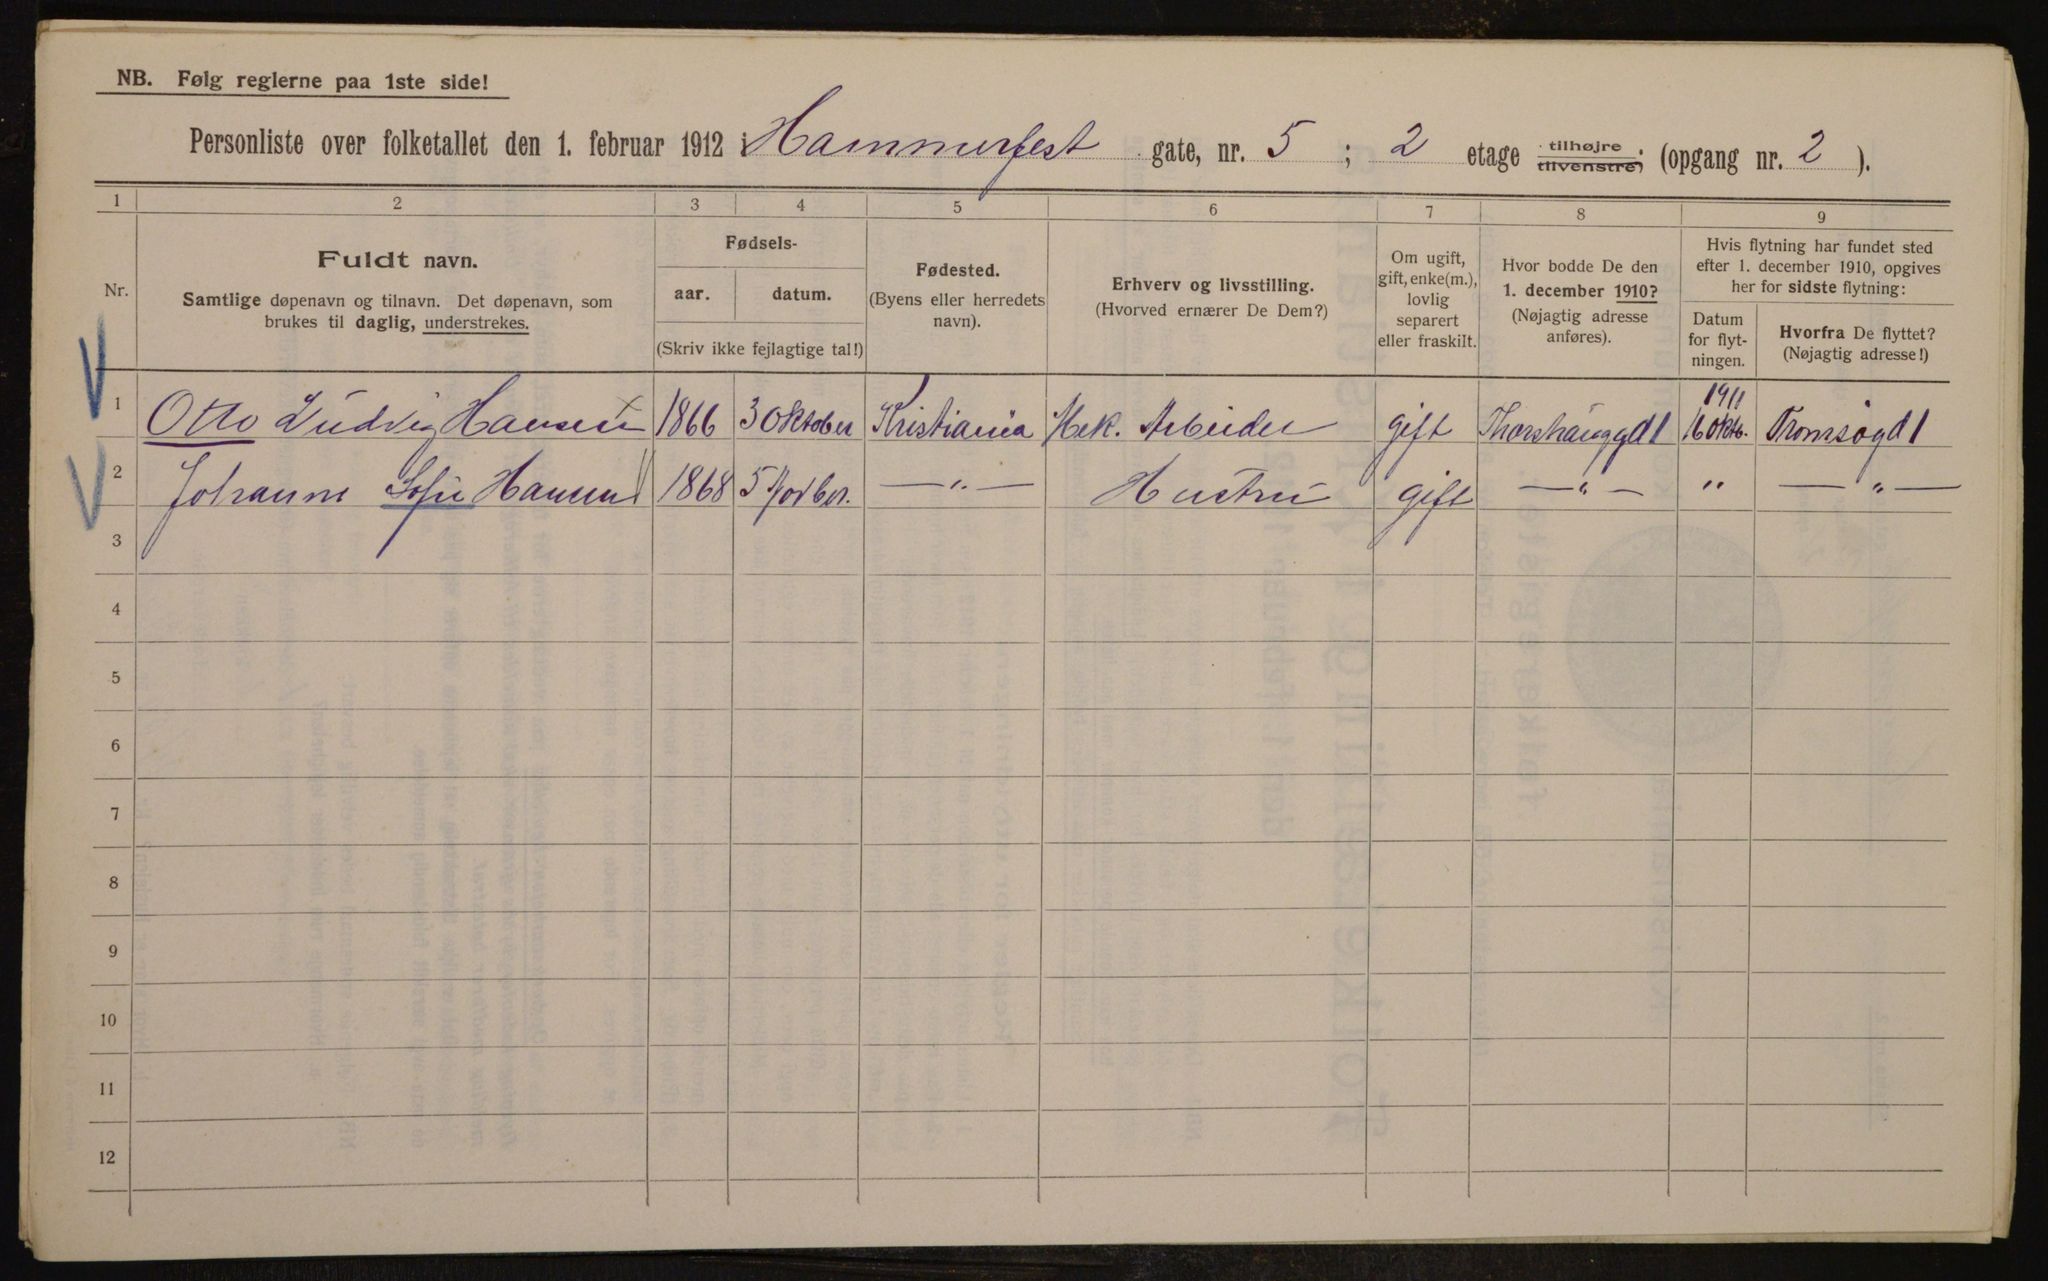 NB. Følg reglerne paa 1ste side!
Personliste over folketallet den 1. februar 1912 i Hammerfest gate, nr. 5 ; 2 etage tilhøjre tilvenstre, (opgang nr. 2 ).
1 2 3 4 5 6 7 8 9
Nr.
Fuldt navn.
Samtlige døpenavn og tilnavn. Det døpenavn, som
brukes til daglig, understrekes.
Fødsels-
aar. datum.
(Skriv ikke fejlagtige tal!)
Fødested.
(Byens eller herredets
navn).
Erhverv og livsstilling.
(Hvorved ernærer De Dem?)
Om ugift,
gift, enke(m.),
lovlig
separert
eller fraskilt.
Hvor bodde De den
1. december 1910?
(Nøjagtig adresse
anføres).
Hvis flytning har fundet sted
efter 1. december 1910, opgives
her for sidste flytning:
Datum
for flyt-
ningen.
Hvorfra De flyttet?
(Nøjagtig adresse!)
1911
1 Otto Ludvig Hansen 1866 3 Oktober Kristiania Mek. Arbeider gift Thorshauggd 1 16 oktb. Tromsøgd 1
2 Johanne Sofie Hansen 1868 5 — „ — Hustru gift — „ — „ — „ —
3
4
5
6
7
8
9
10
11
12